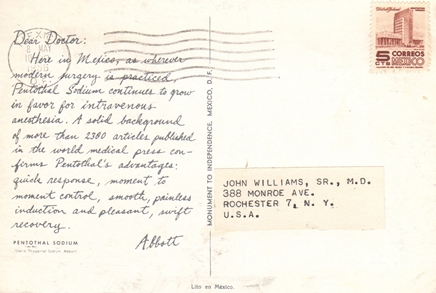 Dear Doctor:
Here in Mexico, as wherever
modern surgery is practiced,
Pentothal Sodium continues to grow
in favor for intravenous
anesthesia. A solid background
of more than 2380 articles published
in the world medical press con-
firms Pentothal's advantages:
quick response, moment to
moment control, smooth, painless
induction and pleasant, swift
recovery.
Abbott
PENTOTHAL SODIUM
Abbott
MONUMENT TO INDEPENDENCE, MEXICO, D. F.
5
CTS
CORREOS
MEXICO
JOHN WILLIAMS, SR., M.D.
388 MONROE AVE.
ROCHESTER 7, N. Y.
U.S.A.
Lito en México.